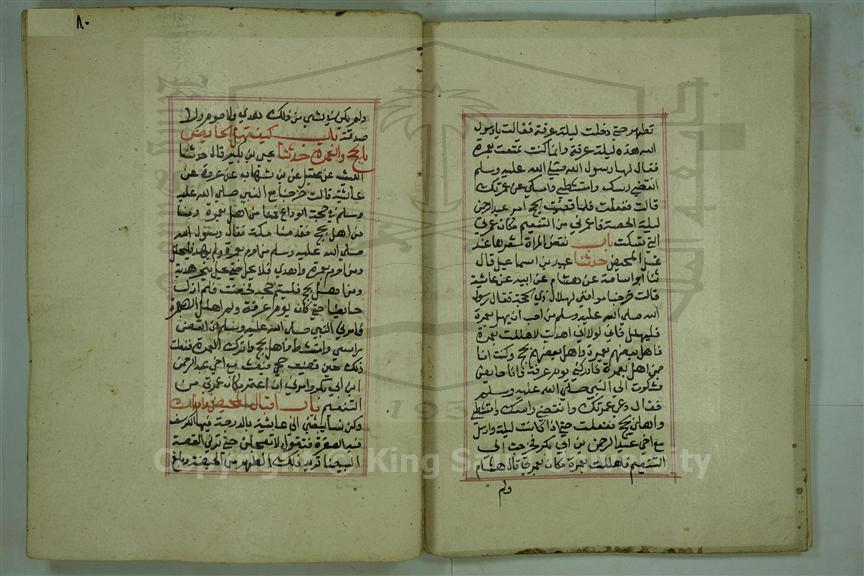 تطهر حتى دخلت ليلة عرفة فقالت يا رسول
الله هذه ليلة عرفة وانما كنت تمتعت بعمرة
فقال لها رسول الله صلى الله عليه وسلم
انقضي رأسك وامتشطي وامسكي عن عمرتك
قالت ففعلت فلما قضيت الحج امر عبد الرحمن
ليلة الحصبة فاعمرني من التنعيم مكان عمرتي
التي نسكت باب نقض المراة شعرها عند
غسل المحيض حدثنا عبيد بن اسماعيل قال
ثنا ابو اسامة عن هشام عن ابيه عن عائشة
قالت خرجنا موافين لهلال ذي الحجة فقال رسول
الله صلى الله عليه وسلم من احب ان يهل بعمرة
فليهلل فاني لولا اني اهديت لاهللت بعمرة
فاهل بعضهم بعمرة واهل بعضهم بحج وكنت انا
ممن اهل بعمرة فادركني يوم عرفة وانا حايض
فشكوت الى النبي صلى الله عليه وسلم
فقال دعي عمرتك وانقضي راسك وامتشطي
واهلي بحج ففعلت حتى اذا كانت ليلة وارسل
مع اخي عبد الرحمن بن ابي بكر فخرجت الى
التنعيم فاهللت بعمرة مكان عمرتي قال هشام
ولم
٨٠
ولم يكن في شيء من ذلك هدي ولا صوم ولا
صدقة باب كيف تهل الحايض
بالحج والعمرة حدثنا يحيى بن بكير قال حدثنا
الليث عن عقيل عن بن شهاب عن عروة عن
عائشة قالت خرجنا مع النبي صلى الله عليه
وسلم في حجة الوداع فمنا من اهل بعمرة ومنا
من اهل بحج فقدمنا مكة فقال رسول الله
صلى الله عليه وسلم من احرم بعمرة ولم يهد فليحلل
ومن احرم بعمرة واهدى فلا يحل حتى يحل بنحر هديه
ومن اهل بحج فليتم حجه فحضت فلم ازل
حايضا حتى كان يوم عرفة ولم اهلل الا بعمرة
فامرني النبي صلى الله عليه وسلم ان انقض
راسي وامتشط واهل بحج واترك العمرة ففعلت
ذلك حتى قضيت حجي فبعث معي اخي عبد الرحمن
ابن ابي بكر وامرني ان اعتمر مكان عمرتي من
التنعيم باب اقبال المحيض وادباره
وكن نساء يبعثن الى عائشة بالدرجة فيها الكرسف
فيه الصفرة فتقول لا تعجلن حتى ترين القصة
البيضا تريد بذلك الطهر من الحيضة وبلغ
Copyright © King Saud University
195